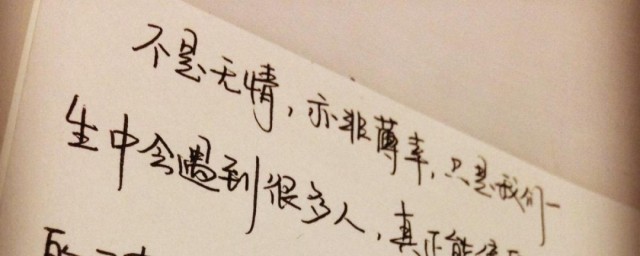 不是无情，亦非薄幸，只是我们一
生中会遇到很多人，真正能